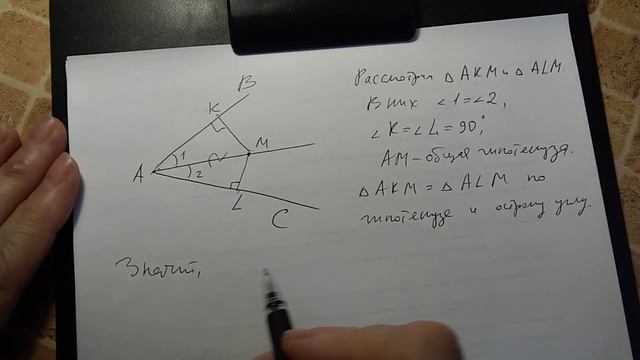 B
K
M
1
A
2
L
C
Рассмотрим △ AKM и △ ALM.
В них ∠1=∠2,
∠K=∠L=90°,
AM-общая гипотенуза.
△ AKM = △ ALM по
гипотенузе и острому углу.
Значит,